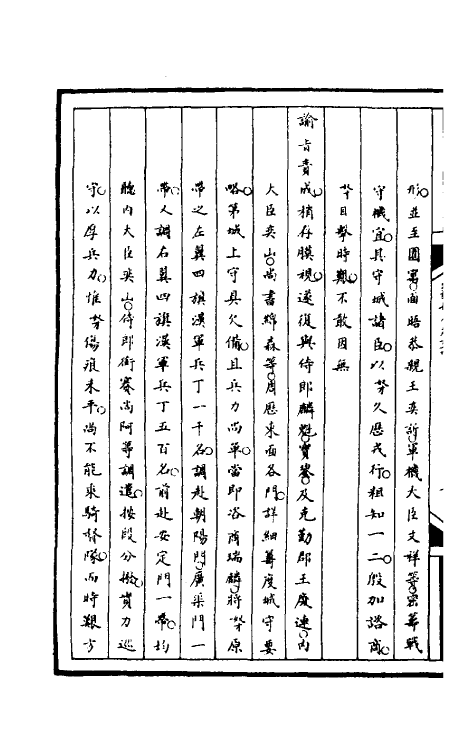 形並至園寓面晤恭親王奕訢軍機大臣文祥等密籌戰
守機宜其守城諸臣以奴才久歷戎行粗知一二殷加諮商
奴才目擊時艱不敢因無
諭旨責成稍存膜視遂復與侍郎麟魁寶鋆及克勤郡王慶連內
大臣奕山尚書綿森等周歷東面各門詳細籌度城守要
略第城上守具欠備且兵力尚單當即咨商瑞麟將奴才原
帶之左翼四旗漢軍兵丁一千名調赴朝陽門廣渠門一
帶又調右翼四旗漢軍兵丁五百名前赴安定門一帶均
聽內大臣奕山侍郎衔賽尚阿等調遣按段分撥實力巡
守以厚兵力惟奴才傷痕未平尚不能乘騎督隊而時艱方